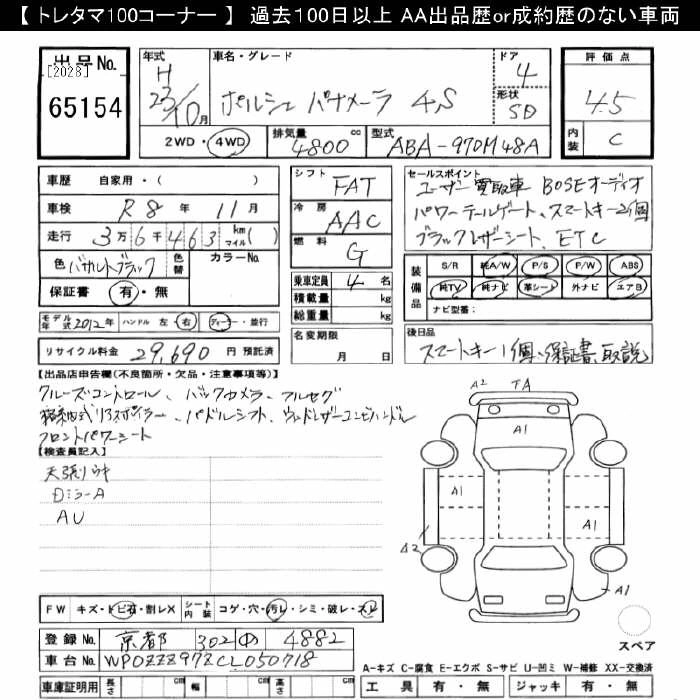 【 トレタマ100コーナー 】 過去100日以上 AA出品歴or成約歴のない車両
出品No.
[2028]
65154
年式 H 23/10月
車名・グレード ポルシェ パナメーラ 4S
ドア 4
形状 SD
評価点 4.5
内装 C
2WD・4WD
排気量 4800 cc
型式 ABA-970M48A
車歴 自家用・( )
車検 R8年 11月
走行 3万6千463 km マイル( )
色 バサルトブラック
色替
カラーNo.
保証書 有・無
モデル年式 2012年 ハンドル 左・右 ディーラー・並行
リサイクル料金 29,690 円 預託済
シフト FAT
冷房 AAC
燃料 G
乗車定員 4 名
積載量 kg
総重量 kg
名変期限 月 日
セールスポイント
ユーザー買取車 BOSEオーディオ
パワーテールゲート、スマートキー2個
ブラックレザーシート、ETC
装備品
S/R 純A/W P/S P/W ABS
純TV 純ナビ 革シート 外ナビ エアB
ナビ型番:
後日品
スマートキー1個、保証書、取説
【出品店申告欄(不良箇所・欠品・注意事項等)】
クルーズコントロール、バックカメラ、フルセグ
格納式リアスポイラー、パドルシフト、ウッドレザーコンビハンドル
フロントパワーシート
【検査員記入】
天張りウキ
DミラーA
AU
A2 TA
A1
A1
A1
A2
A1
スペア
FW キズ・トビ石・割レX シート内装 コゲ・穴・汚レ・シミ・破レ・スレ
登録No. 京都 302 の 4882
車台No. WP0ZZZ97ZCL050718
A-キズ C-腐食 E-エクボ S-サビ U-凹ミ W-補修 XX-交換済
車庫証明用 長さ cm 幅 cm 高さ cm
工具 有・無 ジャッキ 有・無